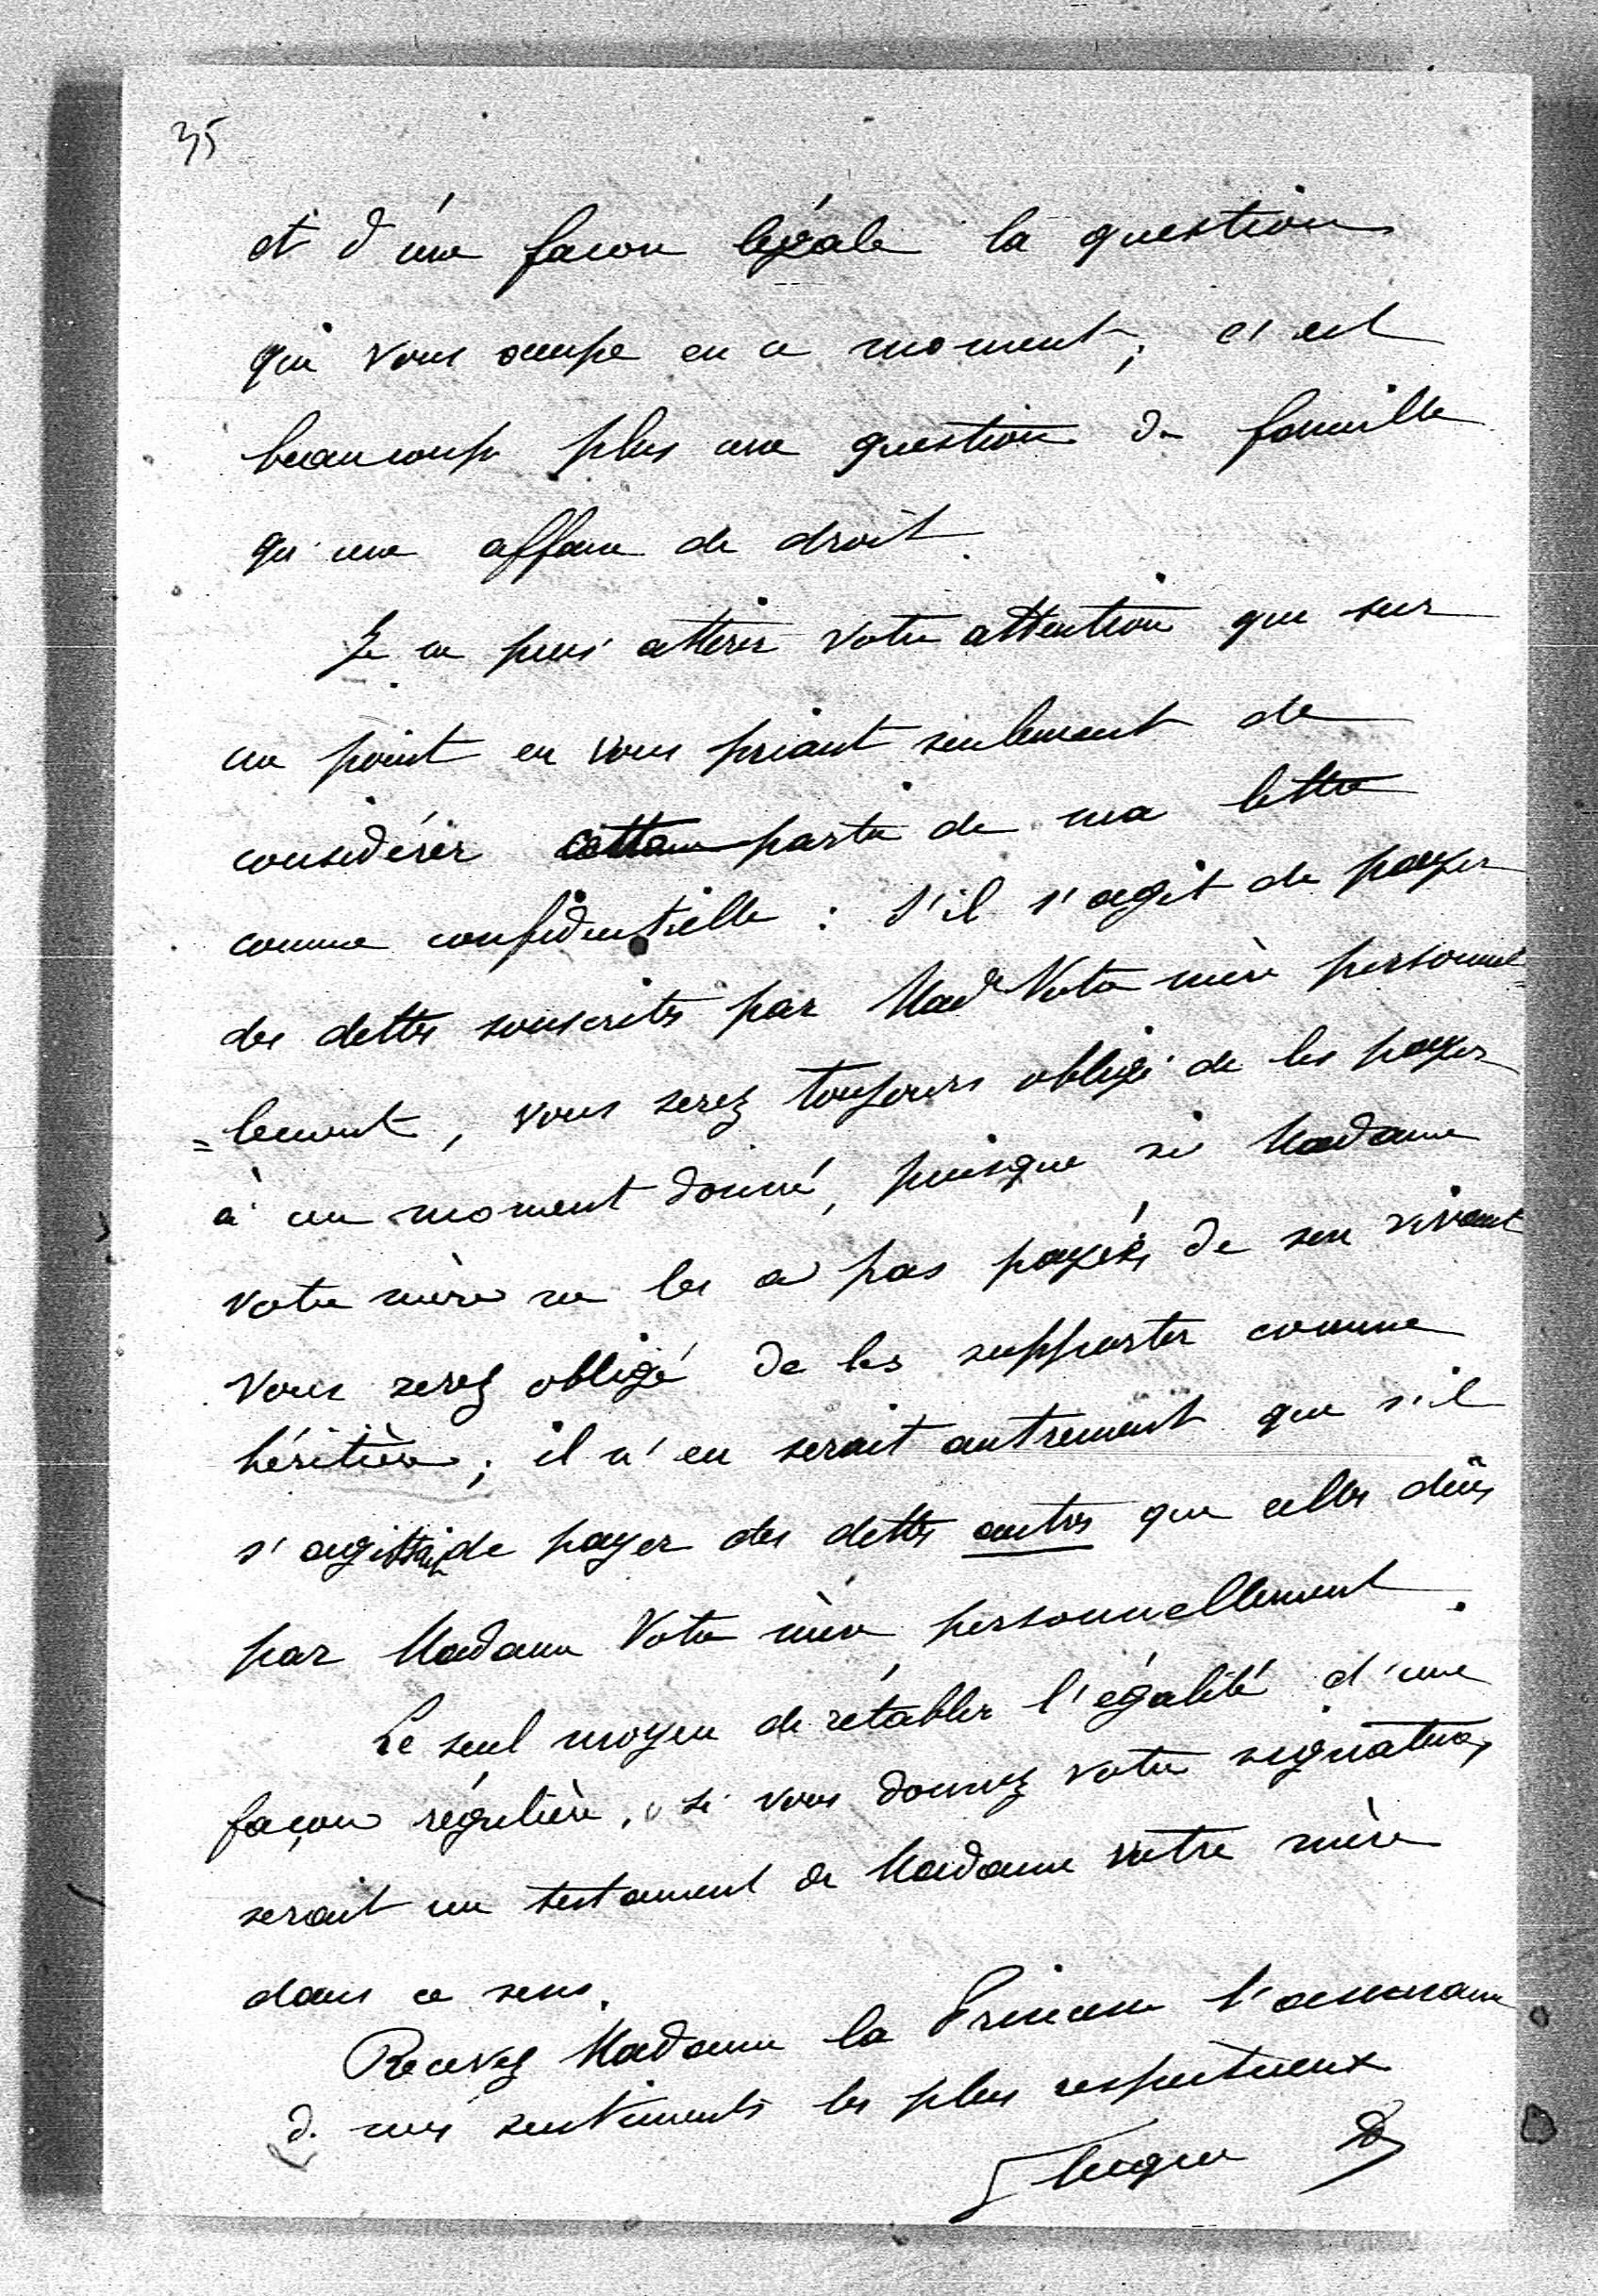 35
et d'une façon légale la question
qui vous occupe en ce moment; c'est
beaucoup plus une question de famille
qu'une affaire de droit.
Je ne puis attirer votre attention que sur
un point en vous priant seulement de
considérer cette partie de ma lettre
comme confidentielle : s'il s'agit de payer
des dettes souscrites par Made Votre mère personnel
=lement, vous serez toujours obligé de les payer
à un moment donné, puisque si Madame
votre mère ne les a pas payées de son vivant
vous serez obligé de les supporter comme
héritière; il n'en serait autrement que s'il
s'agissait de payer des dettes autres que celles dûes
par Madame Votre mère personnellement.
Le seul moyen de rétablir l'égalité d'une
façon régulière, si vous donnez votre signature,
serait un testament de Madame votre mère
dans ce sens.
Recevez Madame la Princesse l'assurance
de mes sentiments les plus respectueux